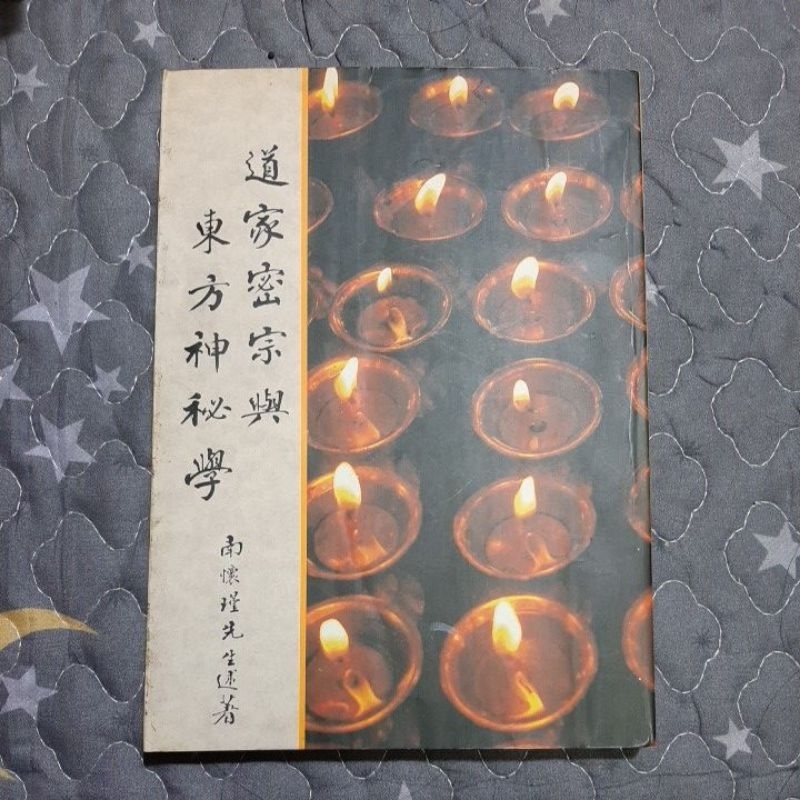 道家密宗與
東方神秘學
南懷瑾先生述著